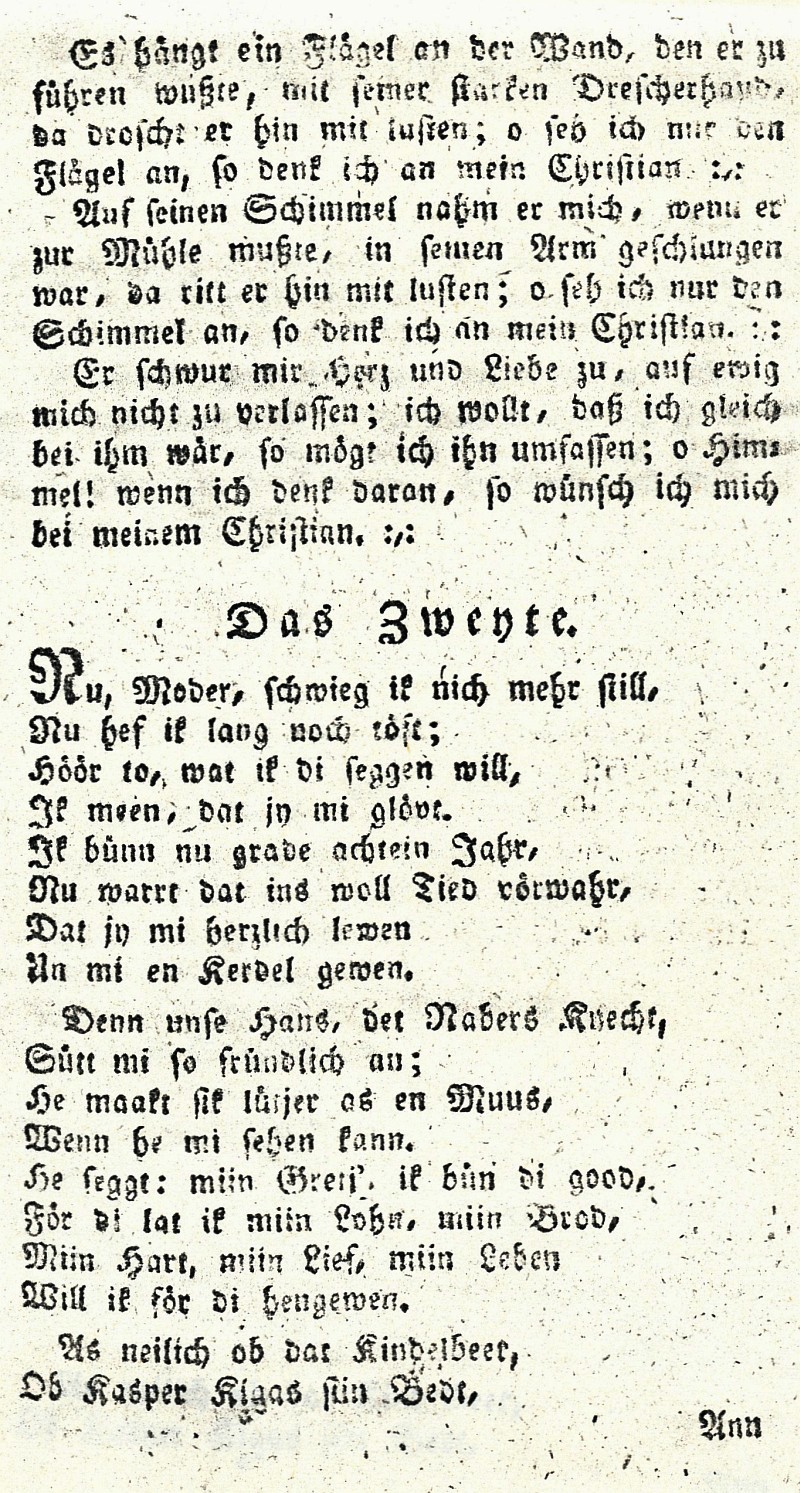 Es hängt ein Flägel an der Wand, den er zu
führen wußte, mit seiner starken Drescherhand,
da droscht er hin mit lusten; o seh ich nur den
Flägel an, so denk ich an mein Christian. :,:
Auf seinen Schimmel nahm er mich, wenn er
zur Mühle mußte, in seinen Arm geschlungen
war, da ritt er hin mit lusten; o seh ich nur den
Schimmel an, so denk ich an mein Christian. : :
Er schwur mir Herz und Liebe zu, auf ewig
mich nicht zu verlassen; ich wollt, daß ich gleich
bei ihm wär, so mögt ich ihn umfassen; o Him-
mel! wenn ich denk daran, so wünsch ich mich
bei meinem Christian. :,:
Das Zweyte.
Nu, Moder, schwieg ik nich mehr still,
Nu hef ik lang noch töft;
Höör to, wat ik di seggen will,
Ik meen, dat jy mi glövt.
Ik bünn nu grade achtein Jahr,
Nu warrt dat ins woll Tied vörwahr,
Dat jy mi herzlich lewen
Un mi en Kerdel gewen.
Denn unse Hans, det Nabers Knecht,
Sütt mi so fründlich an;
He maakt sik lütjer as en Muus,
Wenn he mi sehen kann.
He seggt: miin Greet, ik bün di good,
För di lat ik miin Lohn, miin Brod,
Miin Hart, miin Lief, miin Leben
Will ik för di hengewen.
As neilich ob dat Kindelbeer,
Ob Kasper Klaas siin Bedt,
Ann